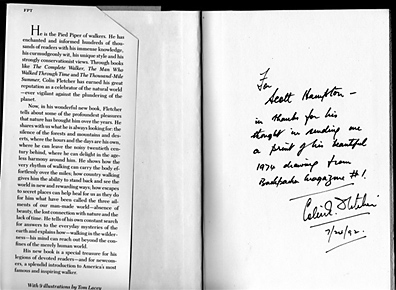 FPT
He is the Pied Piper of walkers. He has
enchanted and informed hundreds of thou-
sands of readers with his immense knowledge,
his curmudgeonly wit, his unique style and his
strongly conservationist views. Through books
like The Complete Walker, The Man Who
Walked Through Time and The Thousand-Mile
Summer, Colin Fletcher has earned his great
reputation as a celebrator of the natural world
—ever vigilant against the plundering of the
planet.
Now, in his wonderful new book, Fletcher
tells about some of the profoundest pleasures
that nature has brought him over the years. He
shares with us what he is always looking for: the
silence of the forests and mountains and des-
erts, where the hours and the days are his own,
where he can leave the noisy twentieth cen-
tury behind, where he can delight in the age-
less harmony around him. He shows how the
very rhythm of walking can carry the body ef-
fortlessly over the miles; how country walking
gives him the ability to stand back and see the
world in new and rewarding ways; how escapes
to secret places can help heal for us as they do
for him what have been called the three ail-
ments of our man-made world—absence of
beauty, the lost connection with nature and the
lack of time. He tells of his own constant search
for answers to the everyday mysteries of the
earth and explains how—walking in the wilder-
ness—his mind can reach out beyond the con-
fines of the merely human world.
His new book is a special treasure for his
legions of devoted readers—and for newcom-
ers, a splendid introduction to America's most
famous and inspiring walker.
With 9 illustrations by Tom Lacey
For
Scott Hampton –
in thanks for his
thought in sending me
a print of his beautiful
1974 drawing from
Backpacker magazine #1.
Colin Fletcher
7/20/92.